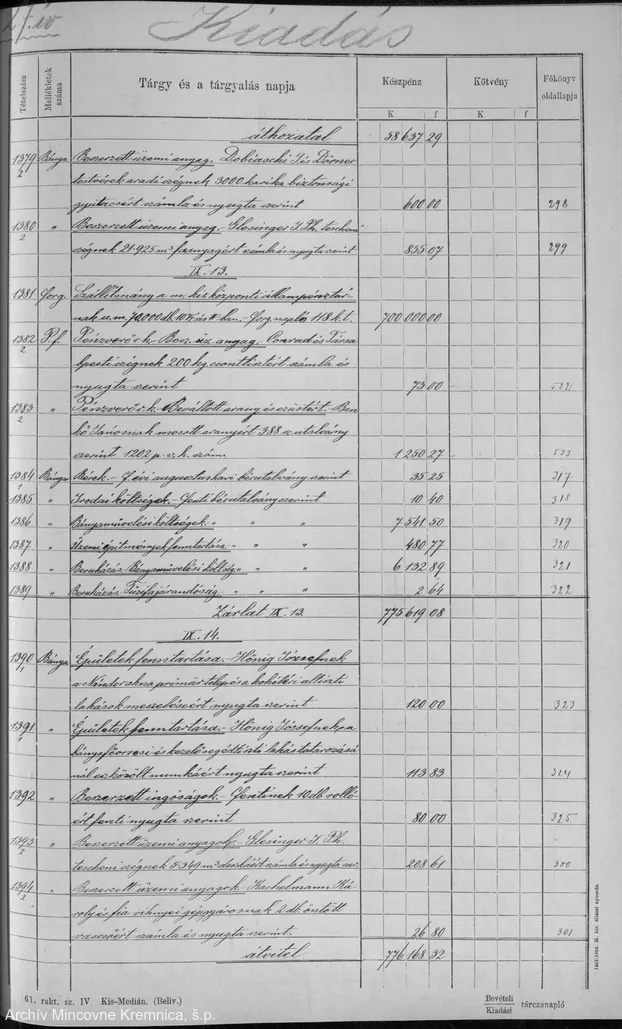 27. ív
Kiadás
Tételszám Mellékletek száma Tárgy és a tárgyalás napja Készpénz Kötvény Főkönyv oldallapja
K f K f
áthozatal 58637 29
1379/2 Bánya Beszerzett üzemi anyag. Dobiaschi J. és Dörner
testvérek aradi czégnek 3000 karika biztonsági
gyutacsért számla és nyugta szerint 600 00 298
1380/2 " Beszerzett üzemi anyag. - Glesinger J. Ph. tescheni
czégnek 21.925 m³ fenyagért számla és nyugta szerint 855 07 299
IX. 13.
1381 Forg. Szállítmány a m. kir. központi állampénztár-
nak u. m. 70,000 db. 10 K ban. - Forg. napló 118 k. t. 700000 00
1382/2 P. f. Pénzverői k. Besz. üz. anyag. Conrad és Társa
bpesti czégnek 200 kg. csontlisztért számla és
nyugta szerint 73 00 532
1383/2 " Pénzverői k. Beváltott arany és ezüstért. Ben-
kő Jánosnak mosott aranyért 388 sz. utalvány
szerint 1202 p. v. h. szám 1250 27 533
1384/1 Bánya Bérek. - F. évi augusztus havi bérutalvány szerint 35 25 317
1385 " Irodai költségek. - fenti bérutalvány szerint 10 40 318
1386 " Bányaművelési költségek. " " " 7541 50 319
1387 " Üzemi építmények fenntartása " " " 480 77 320
1388 " Beruházás. Bányaművelési költség " " " 6132 89 321
1389 " Beruházás. Tűzifajárandóság. " " " 2 64 322
Zárlat IX. 13. 775619 08
IX. 14.
1390/1 Bánya Épületek fenntartása. - Hönig Józsefnek
a Nándor akna prímás telep és a kohótéri altiszti
lakások meszeléséért nyugta szerint 120 00 323
1391/1 " Épületek fenntartása. - Hönig Józsefnek a
bányafőorvosi és kezelővegtiszti lakás tatarozásá-
nál eszközölt munkáért nyugta szerint 113 83 324
1392 " Beszerzett ingóságok. - Fentinek 10 db. rolló-
ért fenti nyugta szerint 80 00 325
1393/2 " Beszerzett üzemi anyagok. Glesinger J. Ph.
tescheni czégnek 5.349 m³ deszkáért számla és nyugta szer. 208 61 300
1394/2 " Beszerzett üzemi anyagok. Kachelmann Ká-
roly és fia vihnyei gépgyárosnak 2 db. öntött
vascsőért számla és nyugta szerint. 26 80 301
átvitel 776168 32
61. rakt. sz. IV Kis-Medián. (Beliv.)
Bevételi
Kiadási tárczanapló
M. kir. állami nyomda.
Archív Mincovne Kremnica, š.p.